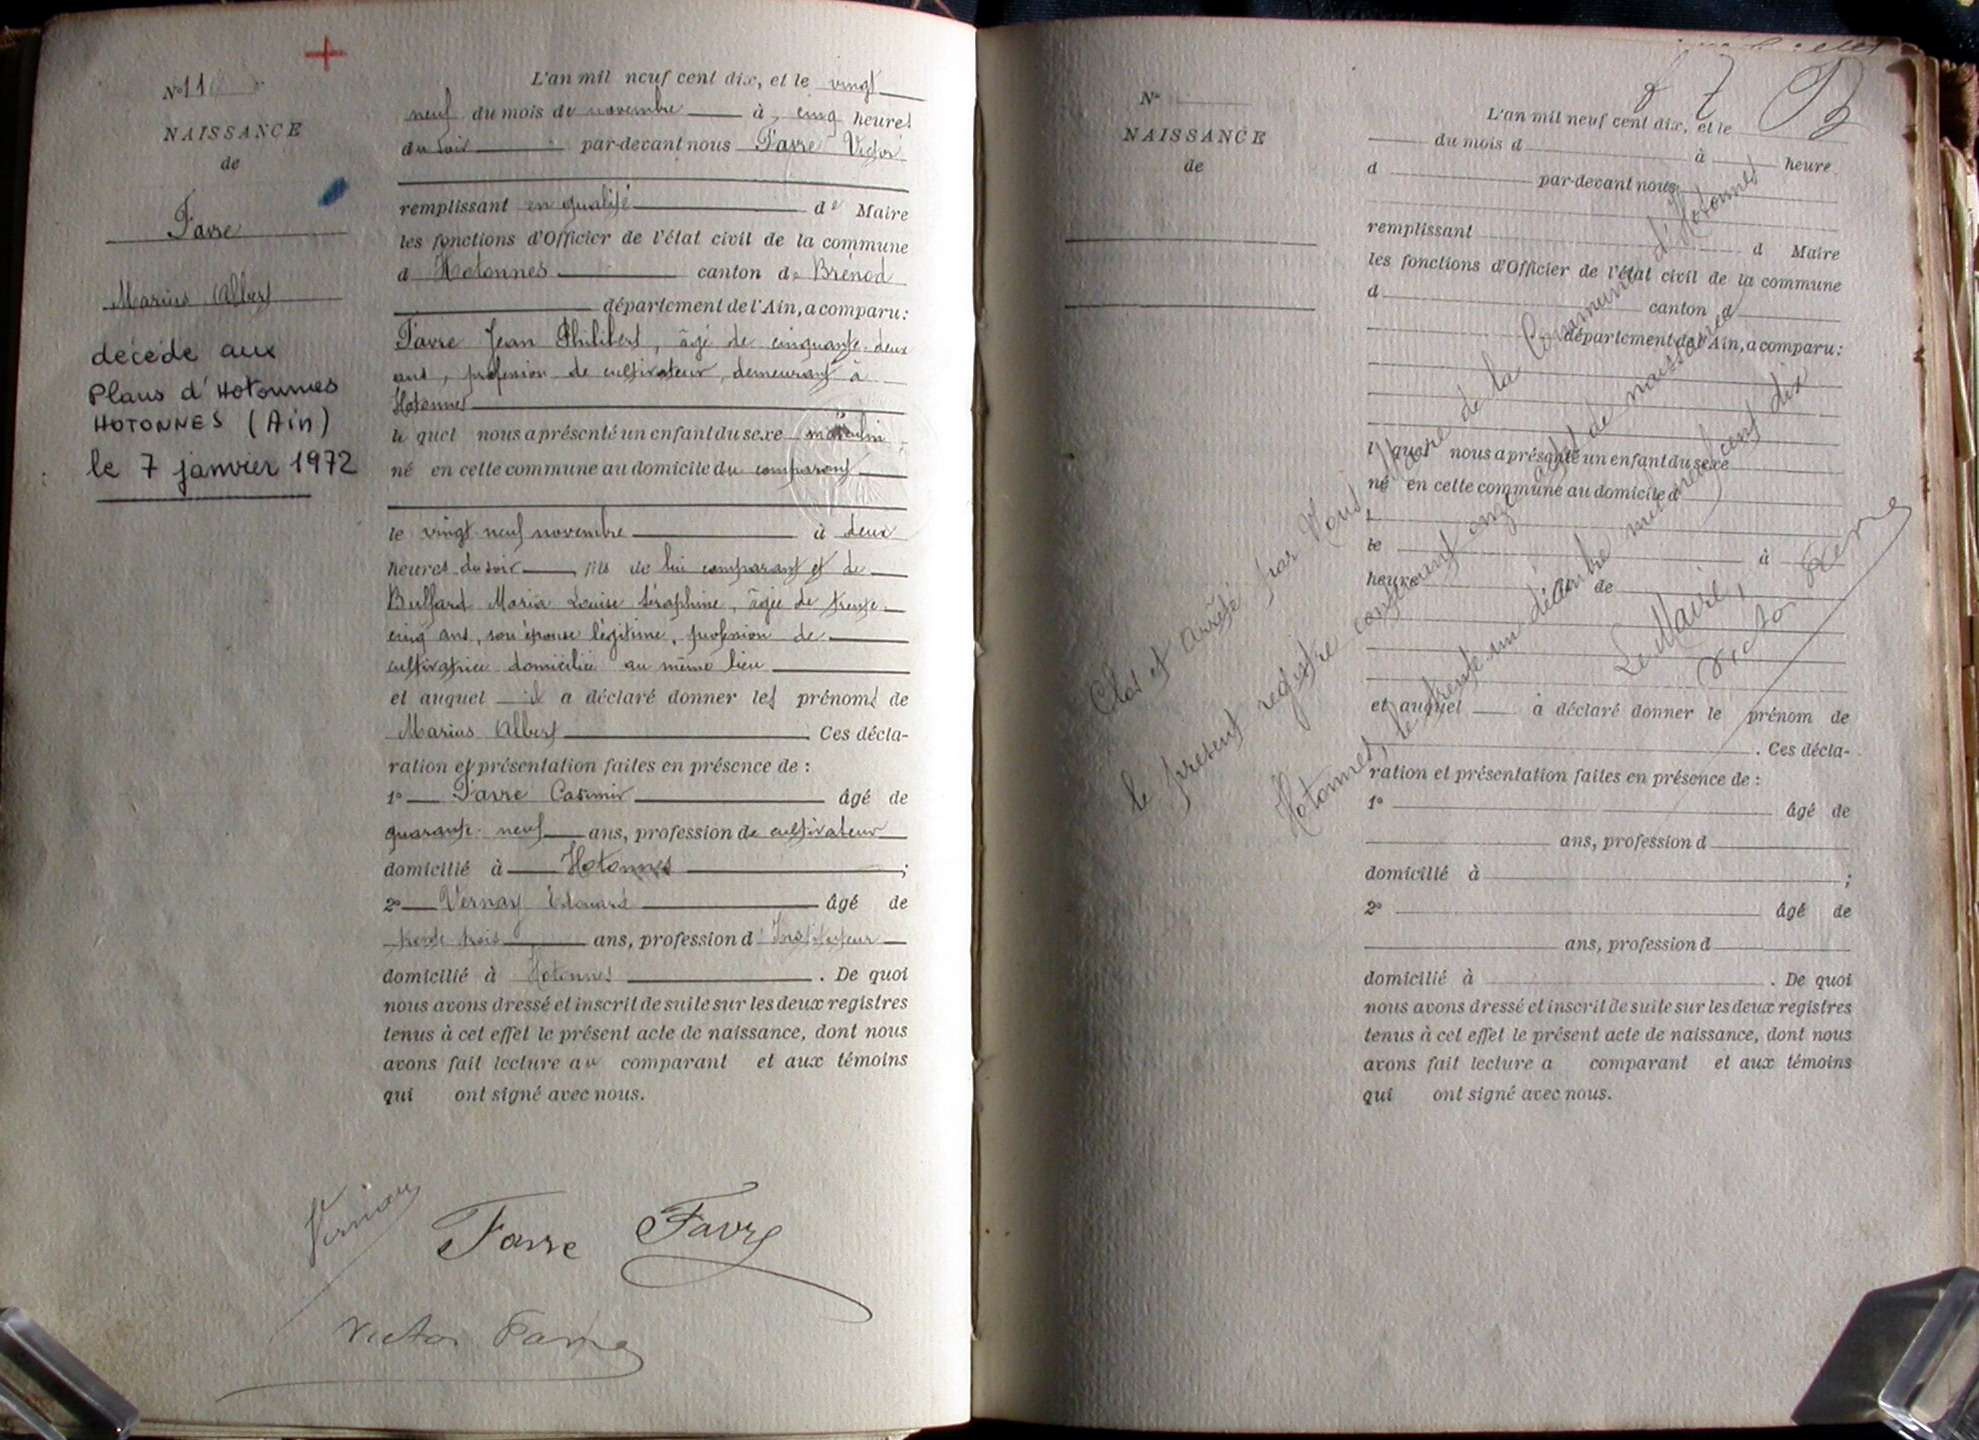 N° 11
NAISSANCE
de
Favre
Marius Albert
décédé aux
Plans d'Hotonnes
HOTONNES (Ain)
le 7 janvier 1972
L'an mil neuf cent dix, et le vingt
neuf du mois de novembre à cinq heures
du soir par-devant nous Favre Victor
remplissant en qualité de Maire
les fonctions d'Officier de l'état civil de la commune
d Hotonnes canton de Brénod
département de l'Ain, a comparu :
Favre Jean Philibert, âgé de cinquante-deux
ans, profession de cultivateur, demeurant à
Hotonnes
le quel nous a présenté un enfant du sexe masculin
né en cette commune au domicile du comparant
le vingt neuf novembre à deux
heures du soir, fils de lui comparant et de
Bulfard Maria Louise Séraphine, âgée de trente-
cinq ans, son épouse légitime, profession de
cultivatrice domiciliée au même lieu
et auquel il a déclaré donner les prénoms de
Marius Albert. Ces décla-
ration et présentation faites en présence de :
1° Favre Casimir âgé de
quarante-neuf ans, profession de cultivateur
domicilié à Hotonnes ;
2° Vernay Edouard âgé de
trente trois ans, profession d'Instituteur
domicilié à Hotonnes. De quoi
nous avons dressé et inscrit de suite sur les deux registres
tenus à cet effet le présent acte de naissance, dont nous
avons fait lecture au comparant et aux témoins
qui ont signé avec nous.
Vernay
Favre Favre
Victor Favre
N°
NAISSANCE
de
L'an mil neuf cent dix, et le
du mois d à heure
d par-devant nous
remplissant d Maire
les fonctions d'Officier de l'état civil de la commune
d canton d
département de l'Ain, a comparu :
l quel nous a présenté un enfant du sexe
né en cette commune au domicile d
le à
heure de
et auquel a déclaré donner le prénom de
. Ces décla-
ration et présentation faites en présence de :
1° âgé de
ans, profession d
domicilié à ;
2° âgé de
ans, profession d
domicilié à . De quoi
nous avons dressé et inscrit de suite sur les deux registres
tenus à cet effet le présent acte de naissance, dont nous
avons fait lecture a comparant et aux témoins
qui ont signé avec nous.
Clos et arrêté par Nous, Maire de la Commune d'Hotonnes
le présent registre contenant onze actes de naissance
Hotonnes, le trente un décembre mil neuf cent dix
Le Maire,
Victor Favre